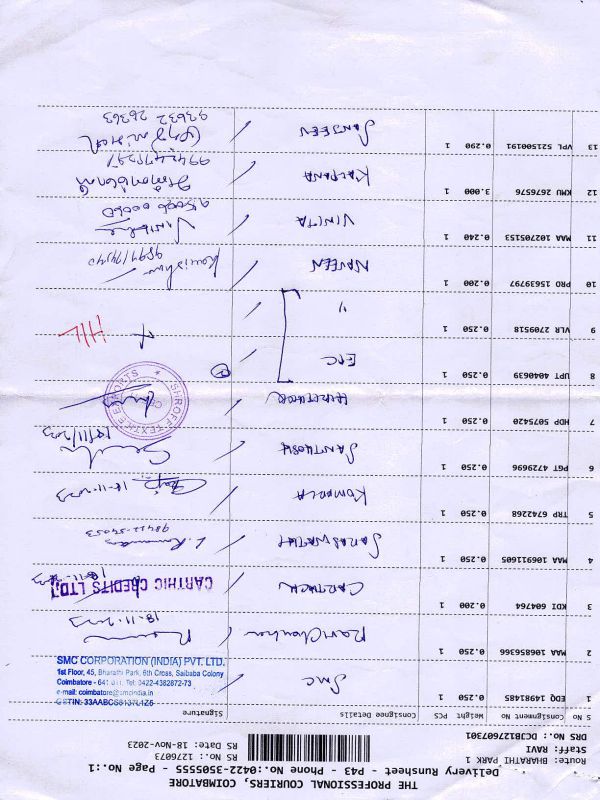 THE PROFESSIONAL COURIERS, COIMBATORE
Delivery Runsheet - P43 - Phone No.:0422-3505555 - Page No.:1
Route: BHARATHI PARK 1
Staff: RAVI RS No.: 1276073
DRS No.: DCJB1276073O1 RS Date: 18-Nov-2023
S No Consignment No Weight PCS Consignee Details Signature
1 EDQ 14981485 0.250 1 SMC
SMC CORPORATION (INDIA) PVT. LTD.
1st Floor, 45, Bharathi Park, 6th Cross, Saibaba Colony
Coimbatore - 641 011. Tel: 0422-4382872-73
e-mail: coimbatore@smcindia.in
GSTIN: 33AABCS8137L1Z6
2 MAA 106896366 0.250 1 Ravichandran / 18-11-2023
3 KDI 604764 0.200 1 CARTHICK / CARTHIC CREDITS LTD.,
4 MAA 106911605 0.250 1 SARASWATHI /
98422-54053
5 TRP 6742268 0.250 1 KOMAALA / 18-11-2023
6 PGT 4729696 0.250 1 SANTHOSH / 18/11/2023
7 HDP 5075420 0.250 1 /
SHROFF TEXTILE EXPORTS
8 UPT 4040639 0.250 1 EPC
9 VLR 2709518 0.250 1 " / H/L
10 PRO 15639797 0.200 1 NAVEEN /
11 MAA 102705153 0.240 1 VINITA /
12 KMU 2676576 3.000 1 KALPANA /
13 VPL 521500191 0.290 1 SANJEEV /
93632 26363